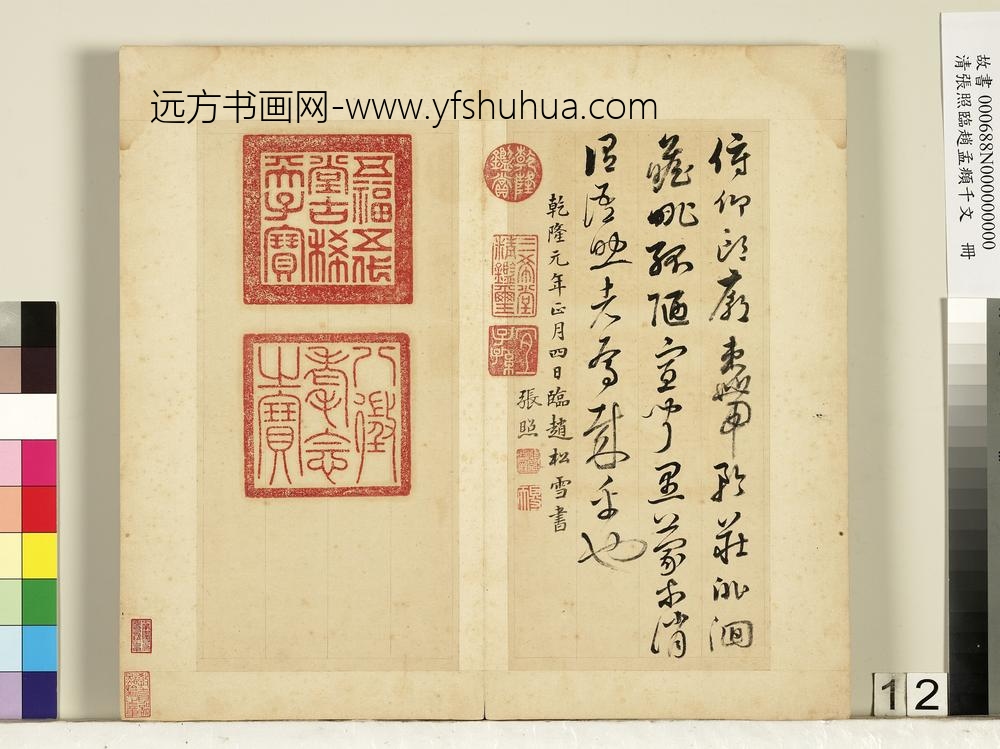 远方书画网-www.yfshuhua.com
故書 000688N000000000
清張照臨趙孟頫千文 冊
俯仰廊廟束帶矜莊徘徊
瞻眺孤陋寡聞愚蒙等誚
謂語助者焉哉乎也
乾隆元年正月四日臨趙松雪書
張照
乾隆鑑賞
三希堂精鑑璽
宜子孫
五福五代堂古稀天子寶
八徵耄念之寶
12